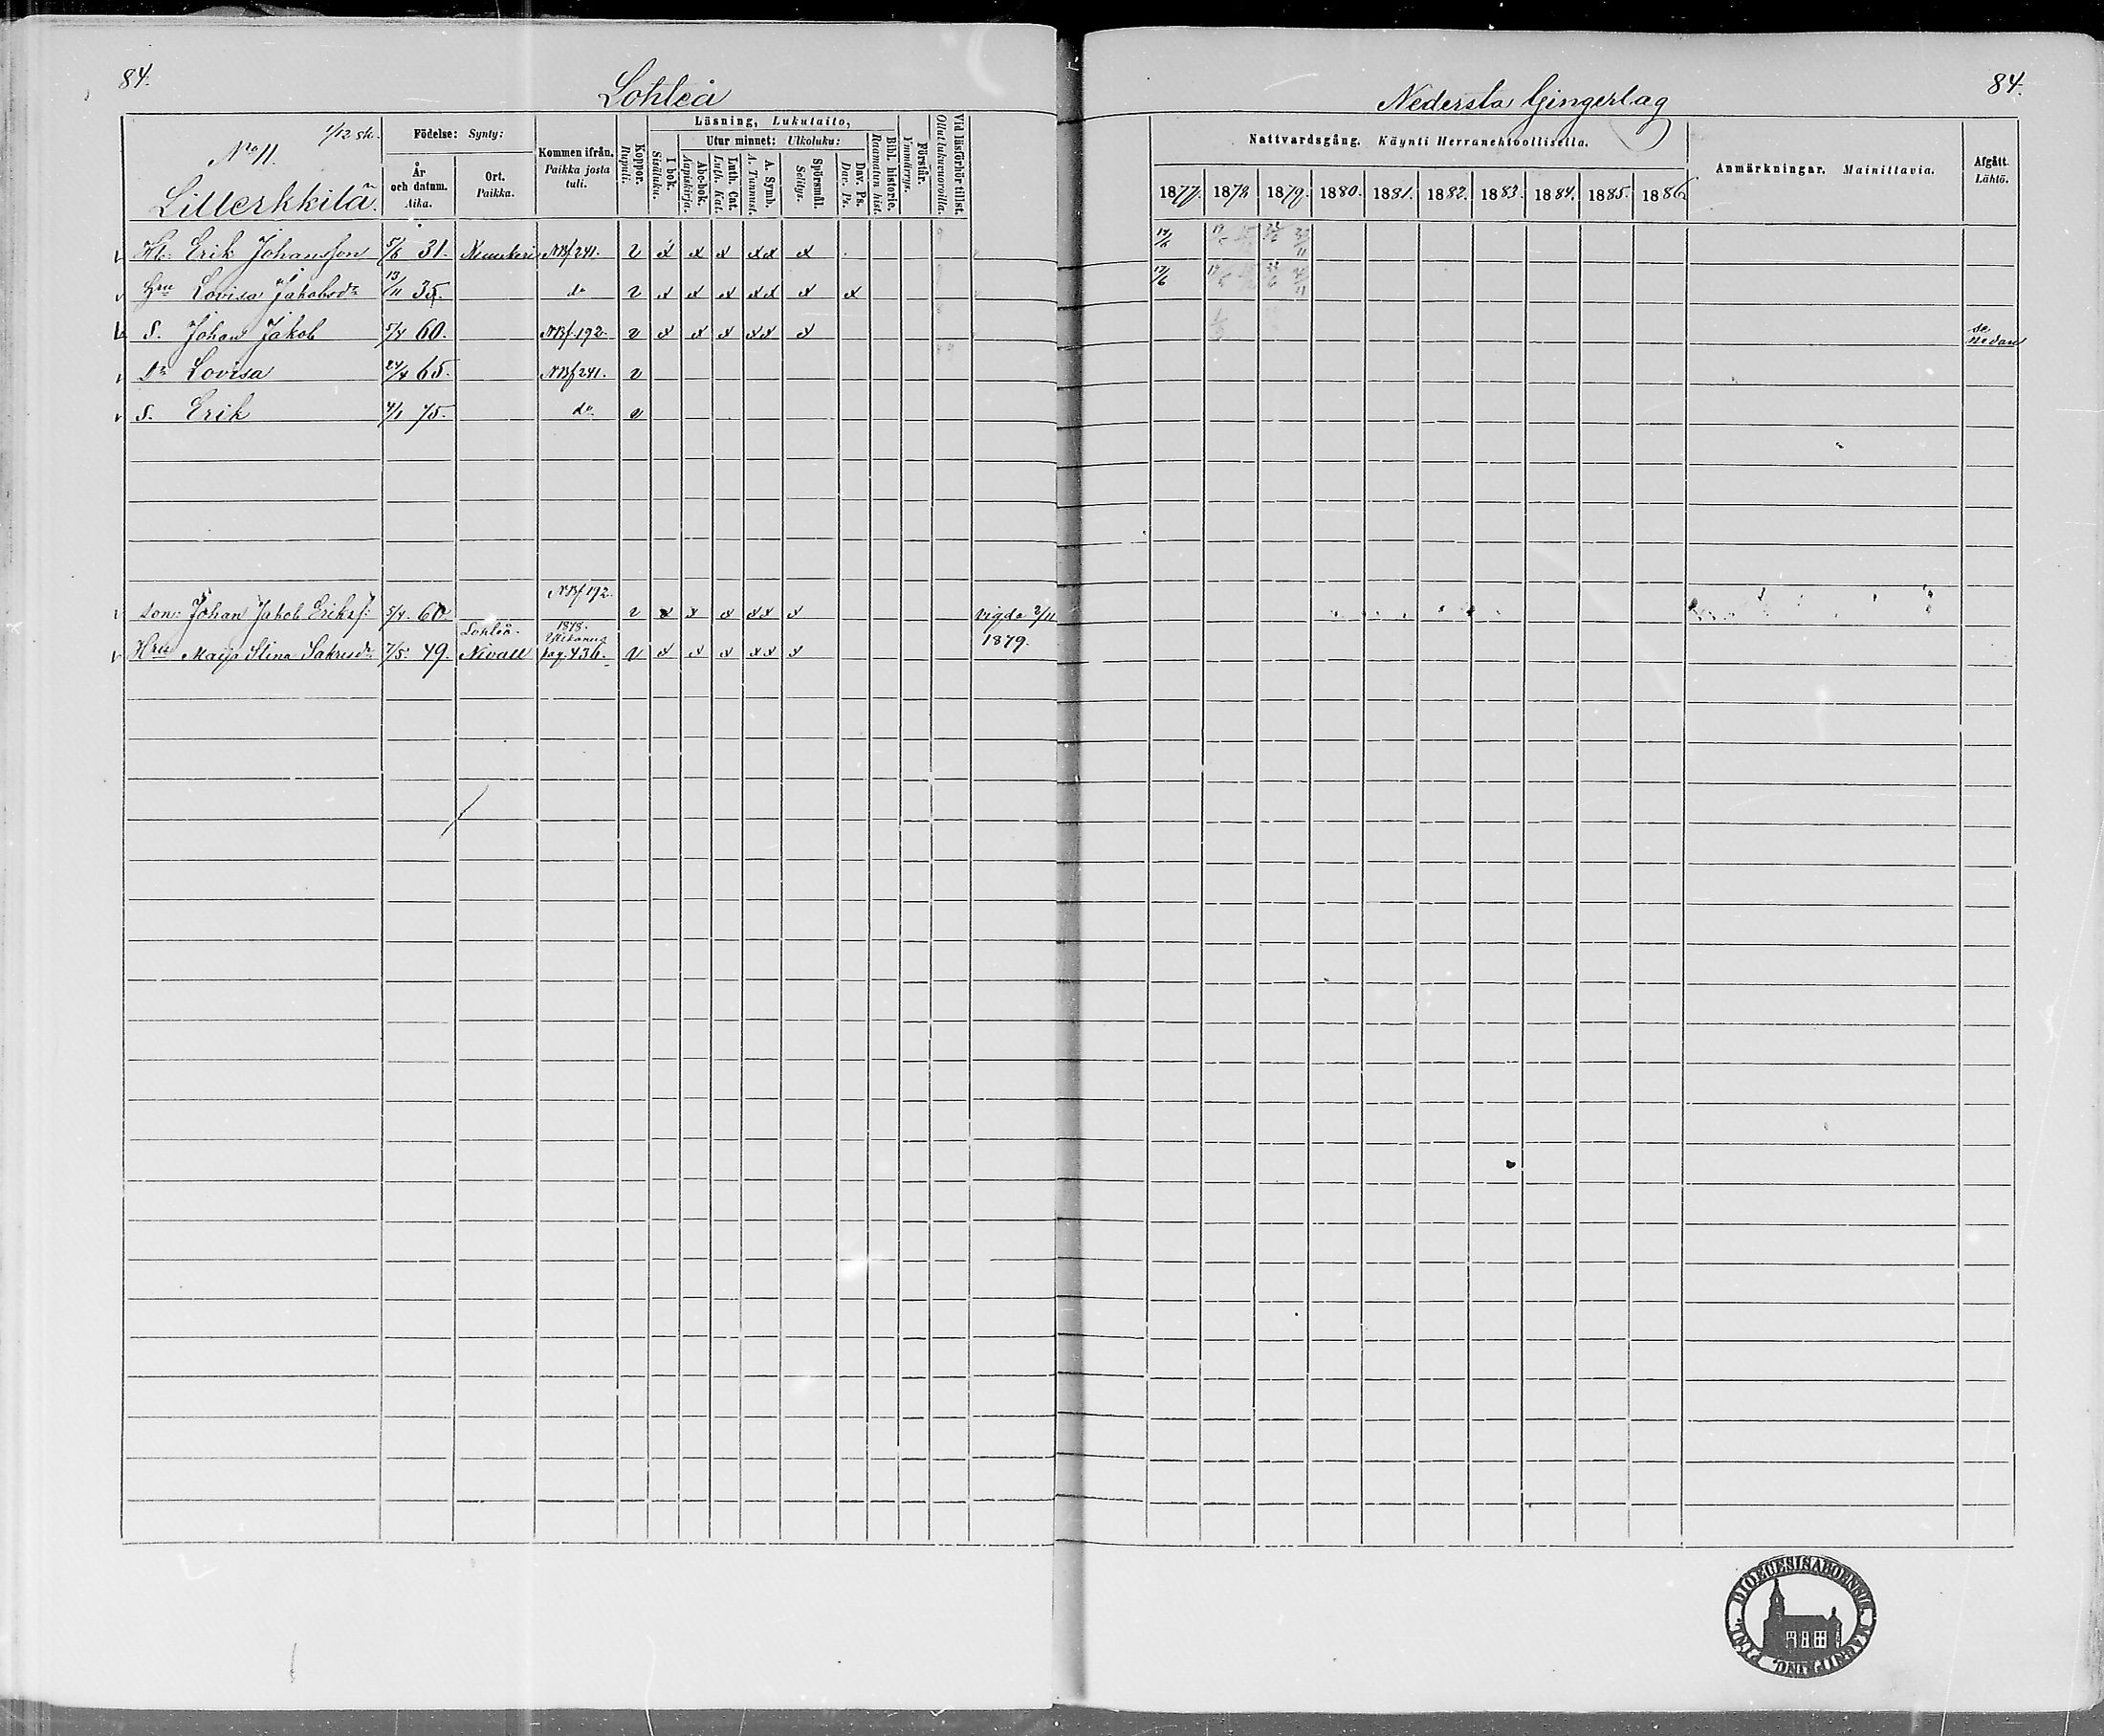 84.
Lohteå
1/12 sk.
No 11.
Lillerkkilä
Födelse: Synty:
År och datum. Aika.
Ort. Paikka.
Kommen ifrån. Paikka josta tuli.
Koppor. Rupuli.
Läsning, Lukutaito,
I bok. Sisäluku.
Utur minnet: Ulkoluku:
Abc-bok. Aapiskirja.
Luth. Cat. Luth. Kat.
A. Symb. A. Tunnust.
Spörsmål. Selitys.
Dav. Ps. Dav. Ps.
Bibl. historie. Raamatun hist.
Förstår. Ymmärrys.
Vid läsförhör tillst. Ollut lukuvuoroilla.
Hb. Erik Johansson 5/6 31. NBf 241. v x x x xx x
Hru Lovisa Jakobsdr 13/11 35. do v x x x xx x x
S. Johan Jakob 5/4 60. NBf 192. v x x x xx x
Dr Lovisa 24/4 65. NBf 241. v
S. Erik 4/1 75. do v
NBf 192.
Son: Johan Jakob Eriksf: 5/4 60. v x x x xx x vigde 2/11
Lohteå. 1878.
Hru Maija Stina Sakrisdr 7/5. 49. Nivall pag. 436. v x x x xx x 1879.
84.
Nedersta Gingerlag
Nattvardsgång. Käynti Herranehtoollisella.
1877. 1878 1879. 1880. 1881. 1882. 1883. 1884. 1885. 1886
Anmärkningar. Mainittavia.
Afgått. Lähtö.
17/6
17/6
se nedan